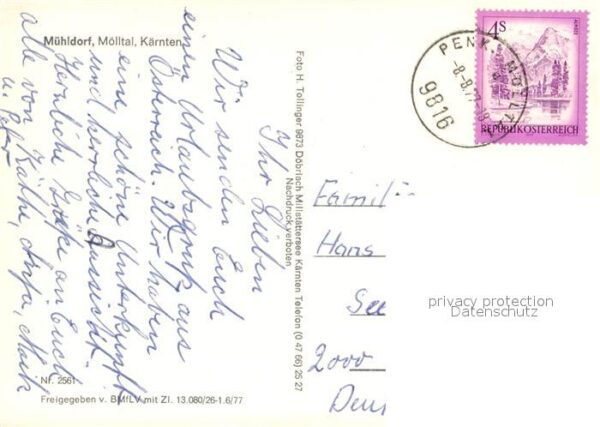 Mühldorf, Mölltal, Kärnten
Ihr Lieben
Wir senden Euch
einen Urlaubsgruß aus
Österreich. Wir haben
eine schöne Unterkunft
und herrliche Aussicht.
Herzliche Grüße an Euch
alle von Käthe, Maik
u. Peter
Nr. 2561
Freigegeben v. BMfLV mit Zl. 13.080/26-1.6/77
Foto H. Tollinger 9873 Döbriach Millstättersee Kärnten Telefon (0 47 66) 25 27
Nachdruck verboten
4S
ALMSEE
REPUBLIK ÖSTERREICH
PENK, MÖLLTAL
-8.-8.77-18
9816
Famil
Hans
See
2000
Deu
privacy protection
Datenschutz